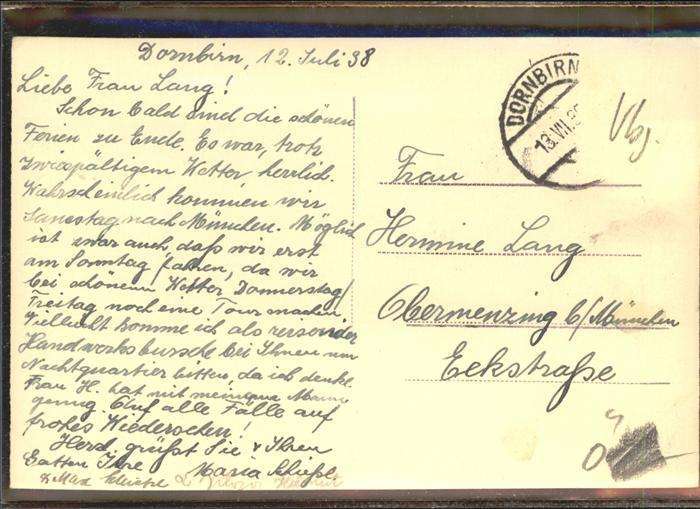 Dornbirn, 12. Juli 38
Liebe Frau Lang!
Schon bald sind die schönen
Ferien zu Ende. Es war, trotz
zwiespältigem Wetter herrlich.
Wahrscheinlich kommen wir
Samstag nach München. Möglich
ist zwar auch, daß wir erst
am Sonntag fahren, da wir
bei schönem Wetter Donnerstag/
Freitag noch eine Tour machen.
Vielleicht komme ich als reisender
Handwerksbursche bei Ihnen um
Nachtquartier bitten, da ich denke
Frau H. hat mit meiner Mama
genug. Auf alle Fälle auf
frohes Wiedersehen!
Herzl. grüßt Sie & Ihren
Gatten Ihre Maria
& Max
DORNBIRN
13.VII.3
Frau
Hermine Lang
Obermenzing b/München
Eckstraße